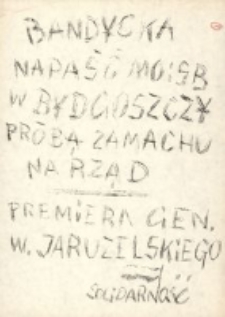 BANDYCKA
NAPAŚĆ MO i SB
W BYDGOSZCZY
PRÓBĄ ZAMACHU
NA RZĄD
PREMIERA GEN.
W. JARUZELSKIEGO
SOLIDARNOŚĆ